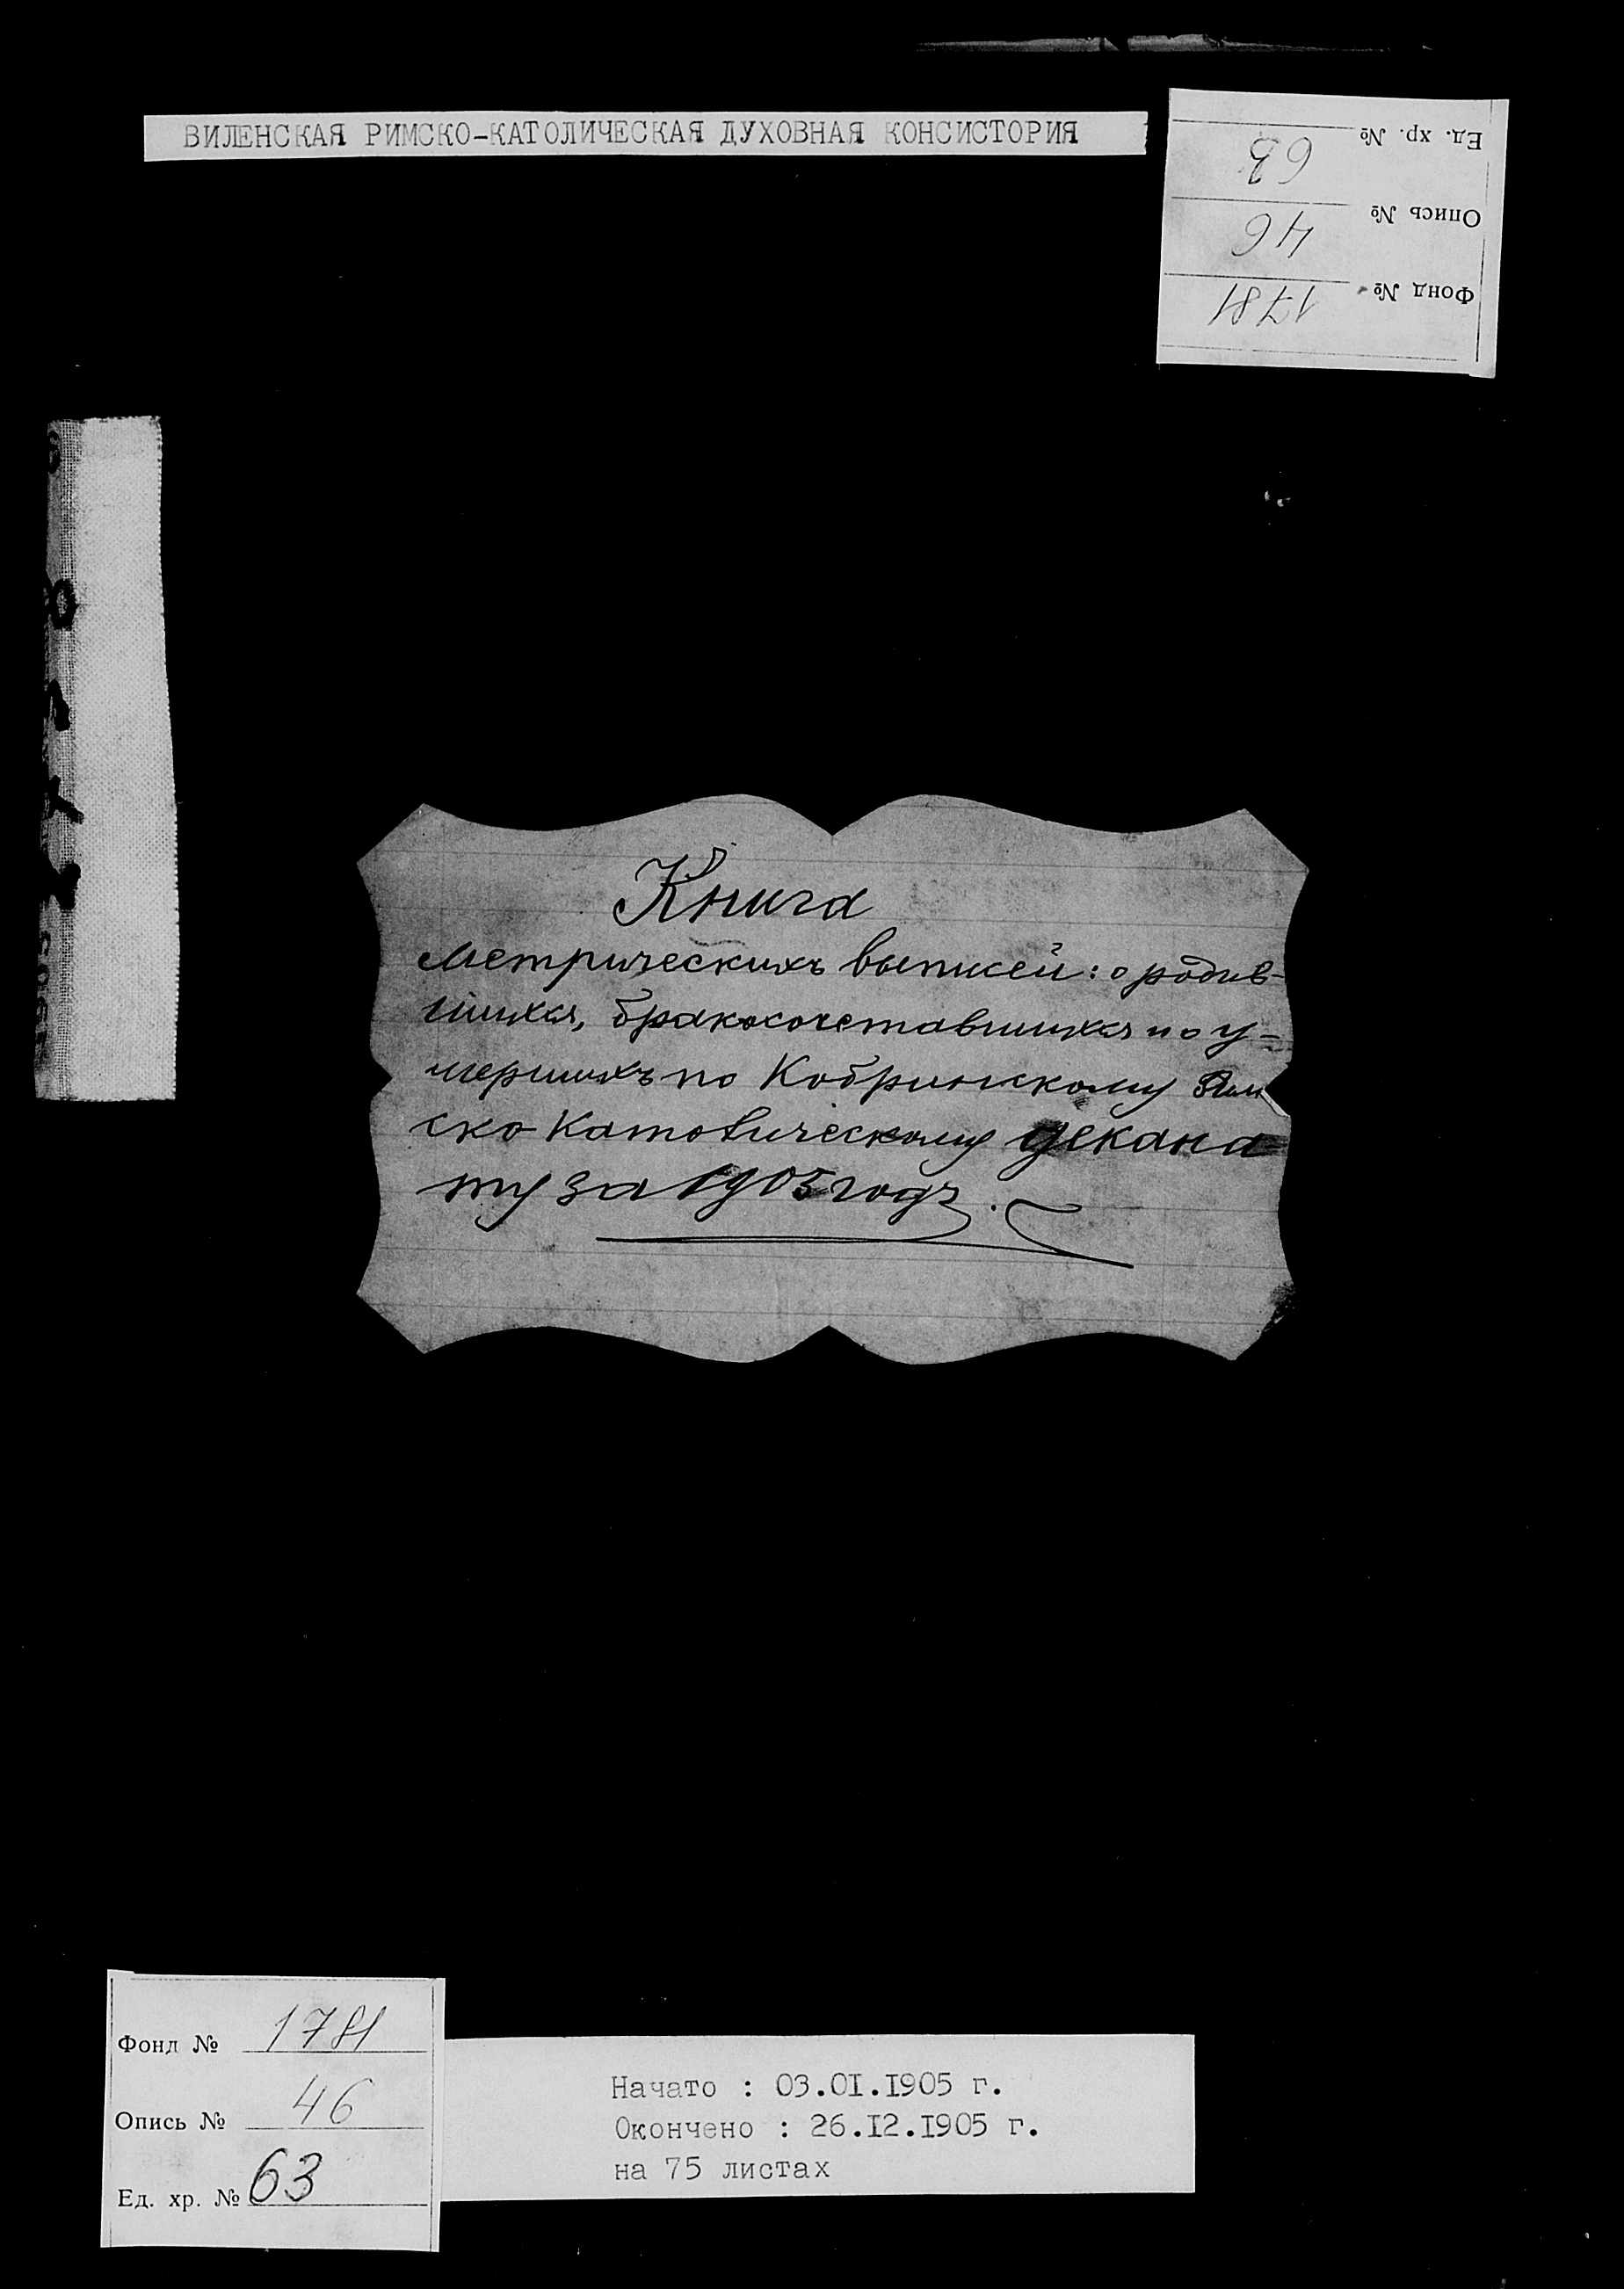 ВИЛЕНСКАЯ РИМСКО-КАТОЛИЧЕСКАЯ ДУХОВНАЯ КОНСИСТОРИЯ
Фонд № 1781
Опись № 46
Ед. хр. № 63
Книга
метрическихъ выписей: о родив-
шихся, бракосочетавшихся и о у=
мершихъ по Кобринскому Рим
ско Католическому декана
ту за 1905 годъ.
Фонд № 1781
Опись № 46
Ед. хр. № 63
Начато : 03.0I.I905 г.
Окончено : 26.I2.I905 г.
на 75 листах